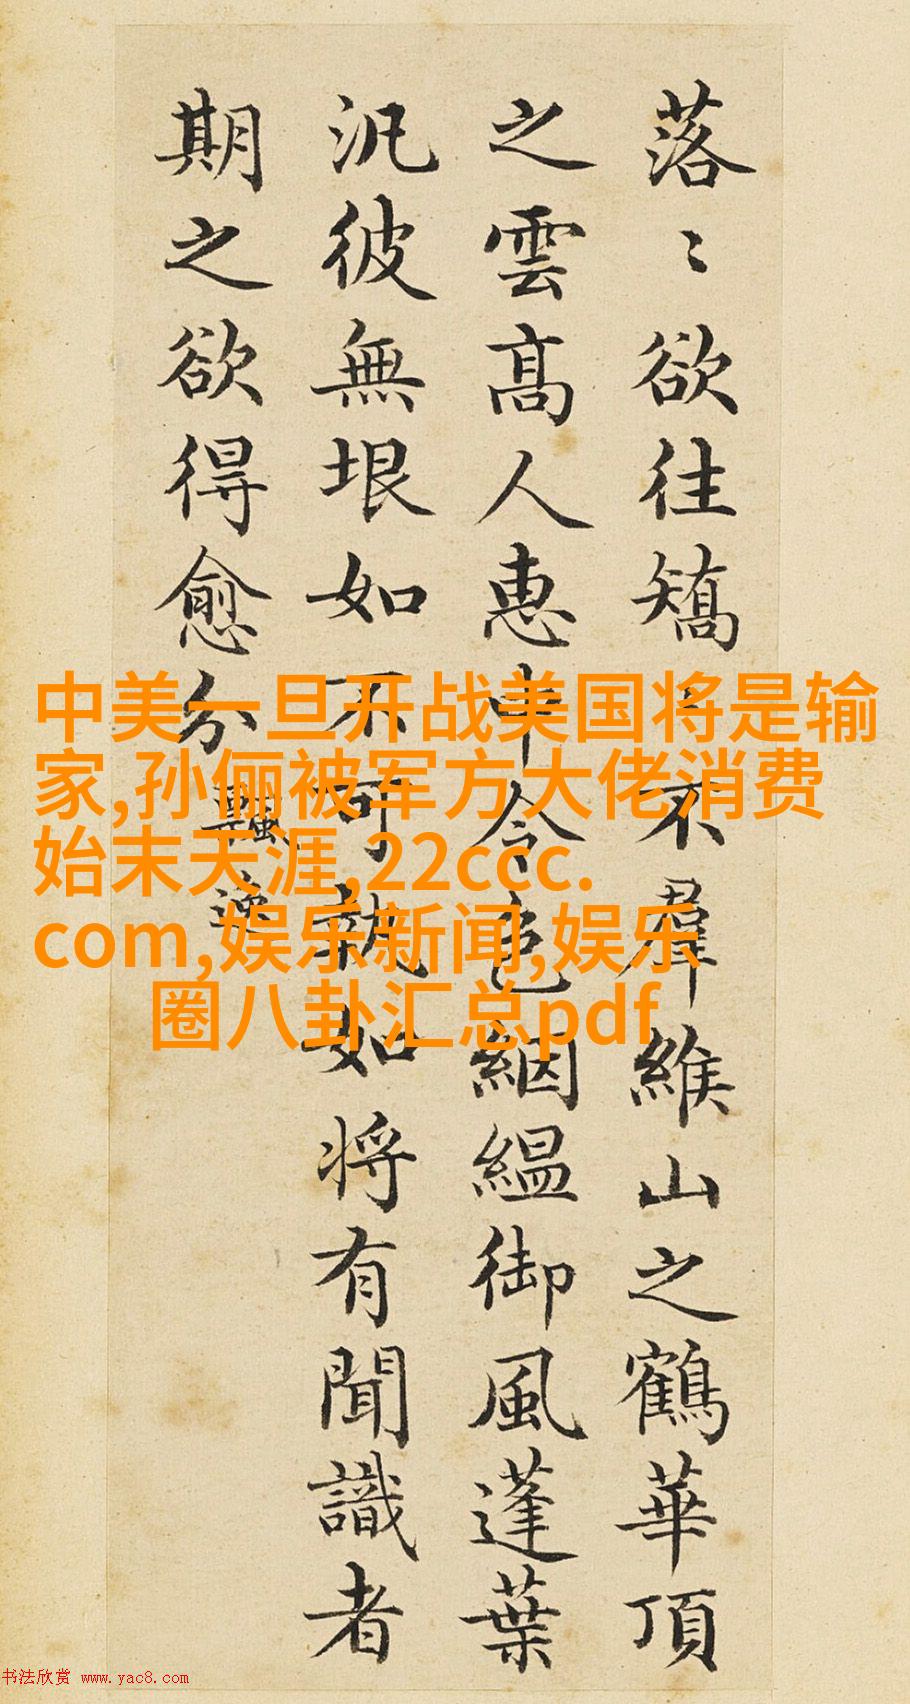 落〻欲往矯〻不羣緱山之鶴華頂
之雲高人惠中令色絪緼御風蓬葉
汎彼無垠如不可執如将有聞識者
期之欲得愈分
飄逸
中美一旦开战美国将是输
家,孙俪被军方大佬消费
始末天涯,22ccc.
com,娱乐新闻,娱乐
圈八卦汇总pdf
书法欣赏 www.yac8.com